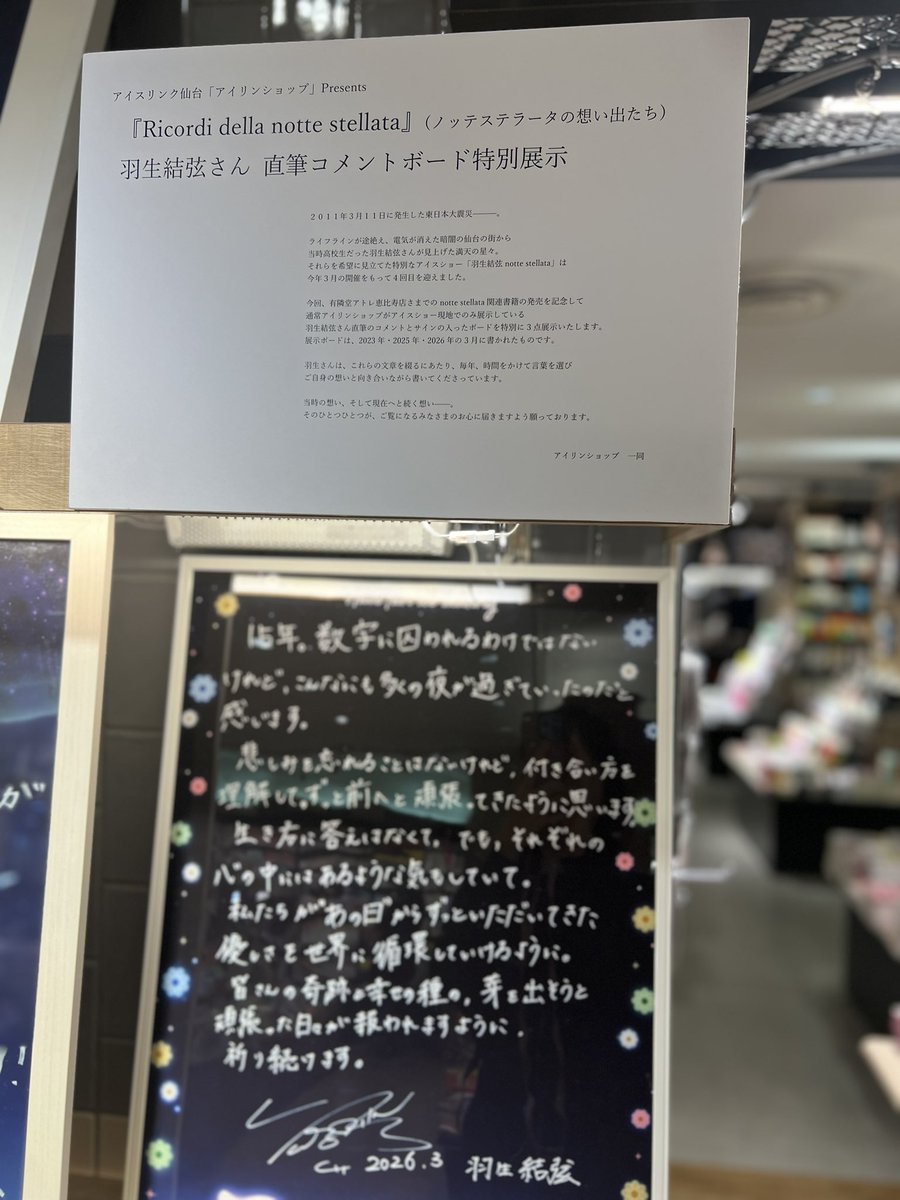 アイスリンク仙台「アイリンショップ」Presents
『Ricordi della notte stellata』(ノッテステラータの想い出たち)
羽生結弦さん 直筆コメントボード特別展示
2011年3月11日に発生した東日本大震災―――。
ライフラインが途絶え、電気が消えた暗闇の仙台の街から
当時高校生だった羽生結弦さんが見上げた満天の星々。
それらを希望に見立てた特別なアイスショー「羽生結弦 notte stellata」は
今年3月の開催をもって4回目を迎えました。
今回、有隣堂アトレ恵比寿店さまでの notte stellata 関連書籍の発売を記念して
通常アイリンショップがアイスショー現地でのみ展示している
羽生結弦さん直筆のコメントとサインの入ったボードを特別に3点展示いたします。
展示ボードは、2023年・2025年・2026年の3月に書かれたものです。
羽生さんは、これらの文章を綴るにあたり、毎年、時間をかけて言葉を選び
ご自身の想いと向き合いながら書いてくださっています。
当時の想い、そして現在へと続く想い――。
そのひとつひとつが、ご覧になるみなさまのお心に届きますよう願っております。
アイリンショップ 一同
15年。数字に囚われるわけではない
けれど、こんなにも多くの夜が過ぎていったのだと
感じます。
悲しみを忘れることはないけど、付き合い方を
理解して、ずっと前へと頑張ってきたように思います。
生き方に答えはなくて。でも、それぞれの
心の中にはあるような気もしていて。
私たちが"あの日"からずっといただいてきた
優しさを世界に循環していけるように。
皆さんの奇跡と幸せの種の、芽を出そうと
頑張った日々が報われますように、
祈り続けます。
2026.3 羽生結弦
が"